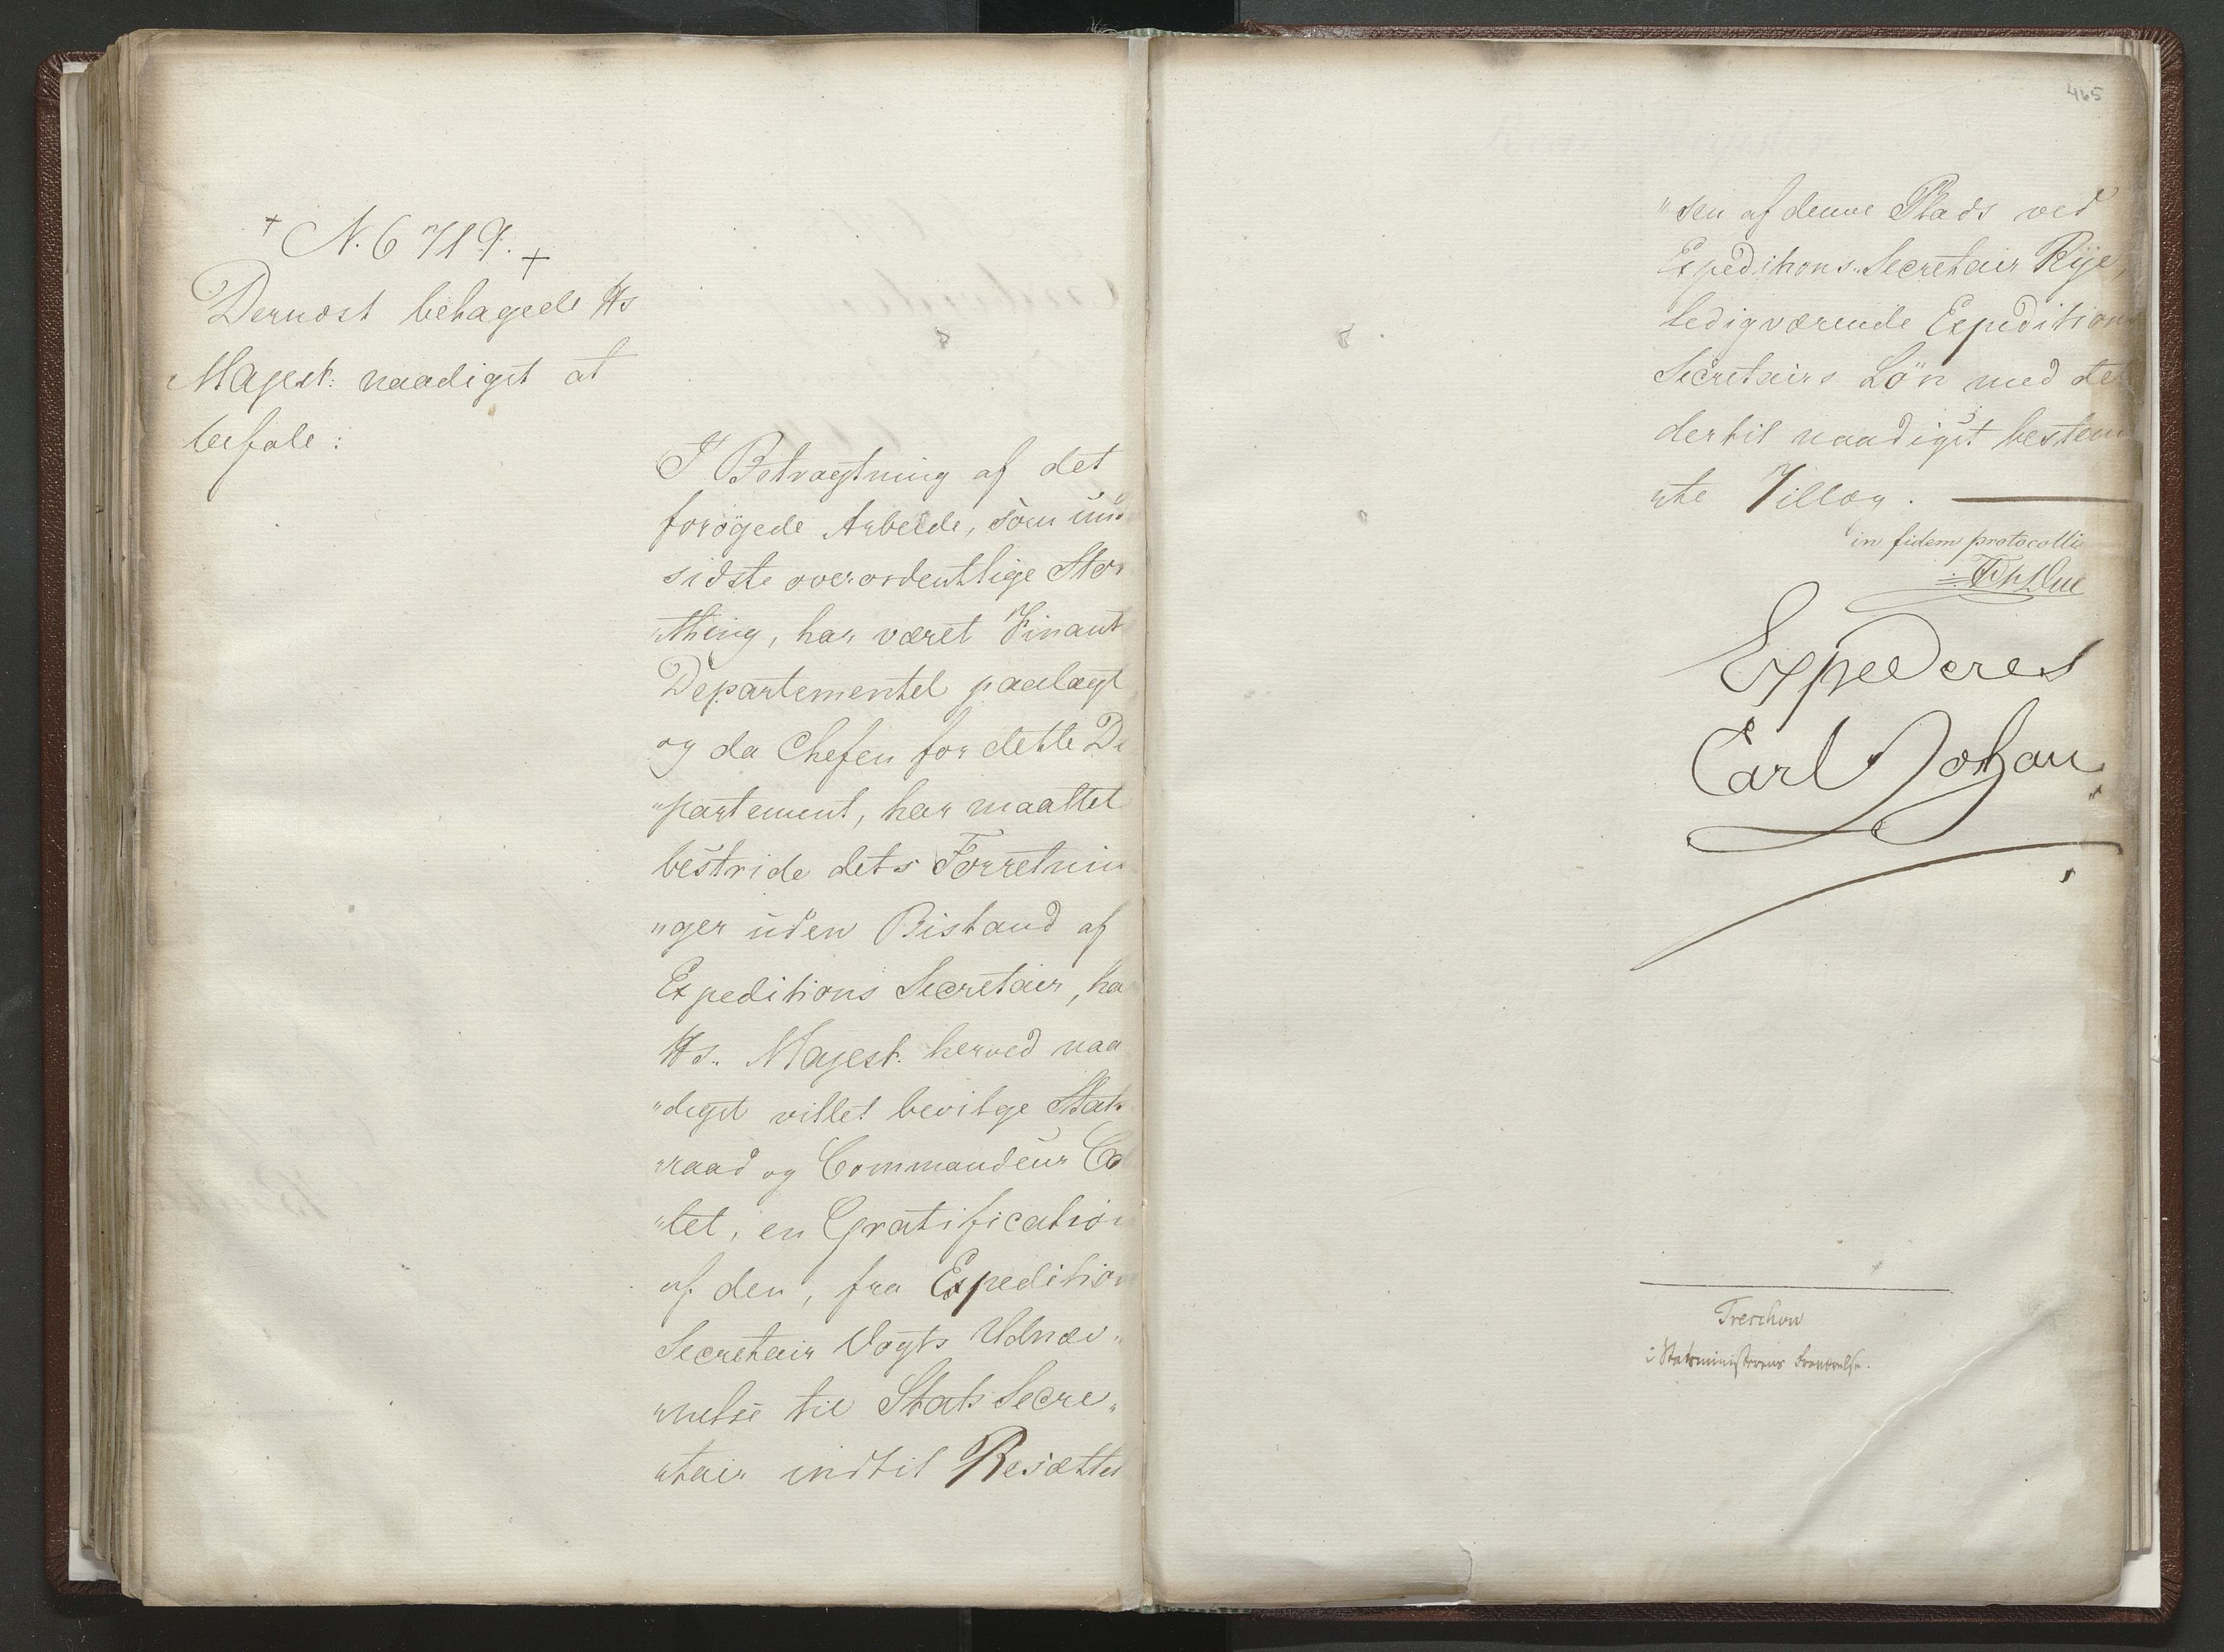 + N. 6719. +
Dernæst behagede Hs
Majest: naadigst at
befale:
I Betragtning af det
forøgede Arbeide, som un
sidste overordentlige Stor
thing, har været Finants
Departementet paalagt
og da Chefen for dette De
"partement, har maattet
bestride dets Forretnin
"ger uden Bistand af
Expeditions Secretair, ha
Hs. Majest. herved naa
"digst villet bevilge Stats
"raad og Commandeur Col
"let, en Gratification
af den, fra Expeditions
Secretair Vogts Udnæv"
"nelse til Stats Secre"
"tair indtil Besættel
465
"sen af denne Plads ved
Expeditions-Secretair Rye,
ledigværende Expeditions
Secretairs Lön med det
dertil naadigst bestem
"te Tillæg.
in fidem protocolli
Due
Expederes
Carl Johan
Treschow
i Statsministerens Fraværelse.